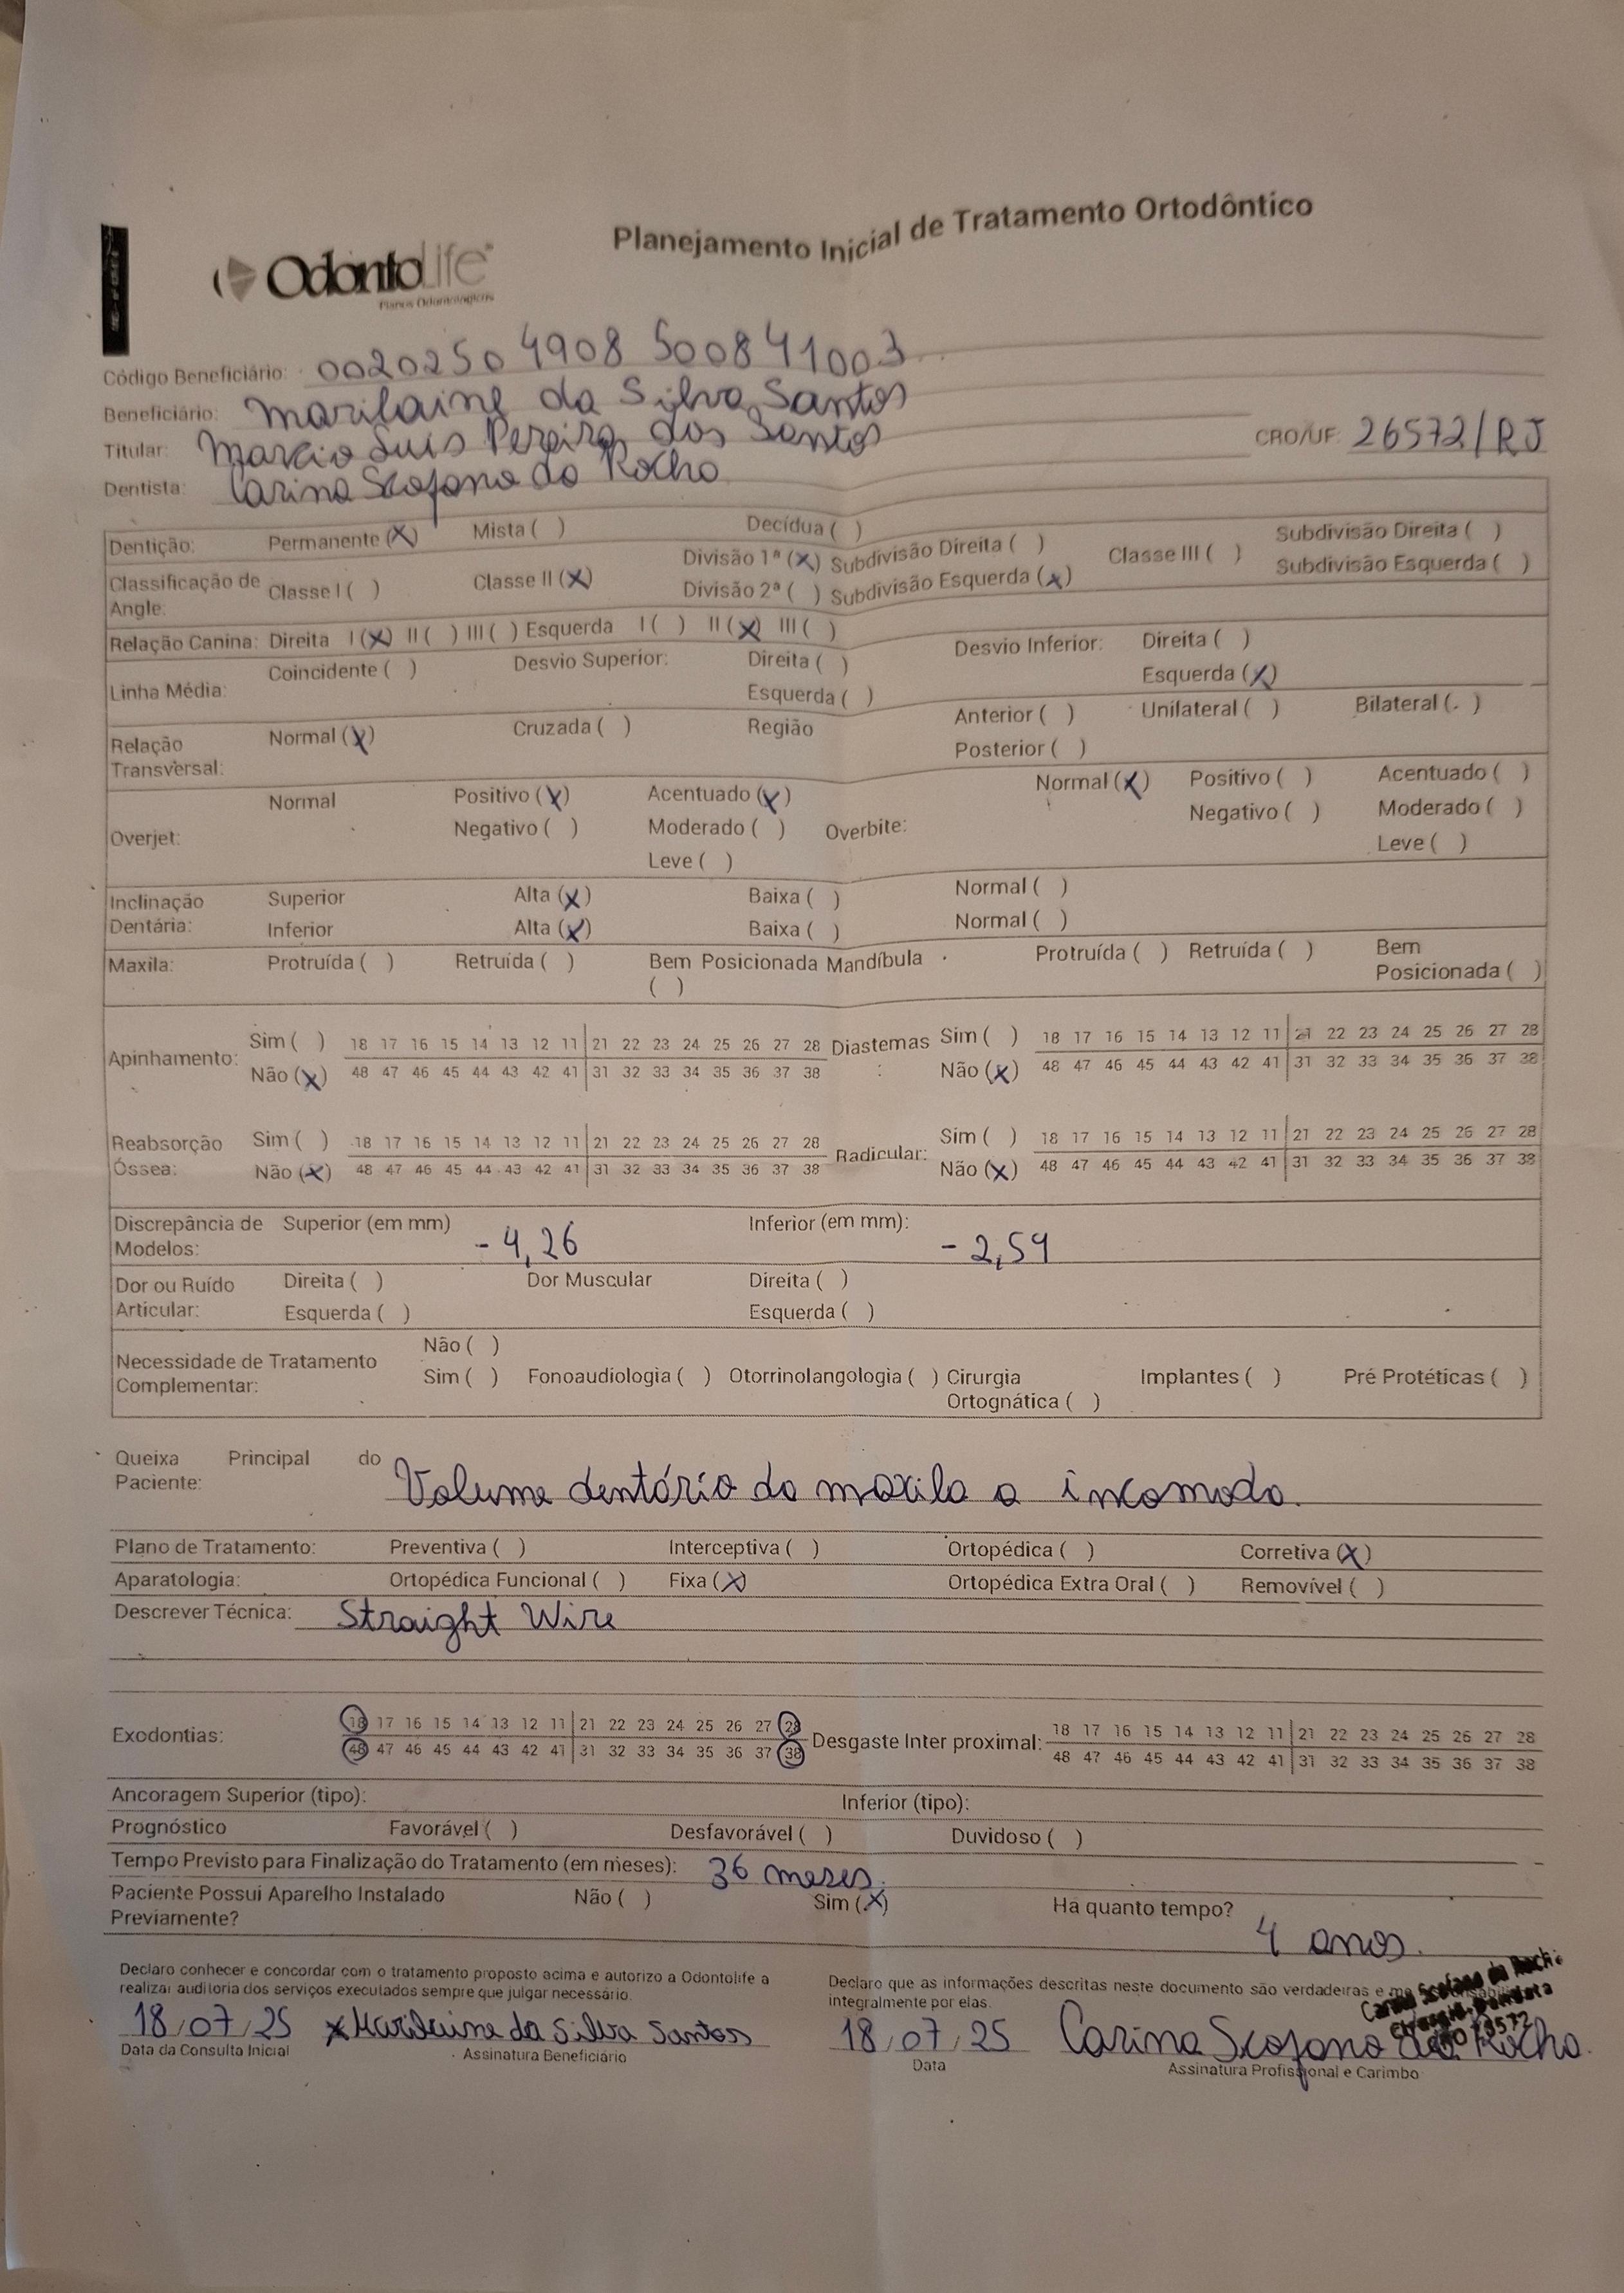 Planejamento Inicial de Tratamento Ortodôntico
OdontoLife
Planos Odontológicos
Código Beneficiário: 00202504908500841003
Beneficiário: Marilaine da Silva Santos
Titular: Marcio Luis Pereira dos Santos
CRO/UF: 26572/RJ
Dentista: Carina Scofano da Rocha
Dentição: Permanente (X) Mista ( ) Decídua ( )
Classificação de Angle: Classe I ( ) Classe II (X) Divisão 1ª (X) Subdivisão Direita ( ) Classe III ( ) Subdivisão Direita ( )
Divisão 2ª ( ) Subdivisão Esquerda (X) Subdivisão Esquerda ( )
Relação Canina: Direita I (X) II ( ) III ( ) Esquerda I ( ) II (X) III ( )
Linha Média: Coincidente ( ) Desvio Superior: Direita ( ) Desvio Inferior: Direita ( )
Esquerda ( ) Esquerda (X)
Relação Transversal: Normal (X) Cruzada ( ) Região Anterior ( ) Unilateral ( ) Bilateral ( )
Posterior ( )
Overjet: Normal Positivo (X) Acentuado (X) Overbite: Normal (X) Positivo ( ) Acentuado ( )
Negativo ( ) Moderado ( ) Negativo ( ) Moderado ( )
Leve ( ) Leve ( )
Inclinação Dentária: Superior Alta (X) Baixa ( ) Normal ( )
Inferior Alta (X) Baixa ( ) Normal ( )
Maxila: Protruída ( ) Retruída ( ) Bem Posicionada ( ) Mandíbula Protruída ( ) Retruída ( ) Bem Posicionada ( )
Apinhamento: Sim ( ) 18 17 16 15 14 13 12 11 21 22 23 24 25 26 27 28 Diastemas: Sim ( ) 18 17 16 15 14 13 12 11 21 22 23 24 25 26 27 28
Não (X) 48 47 46 45 44 43 42 41 31 32 33 34 35 36 37 38 Não (X) 48 47 46 45 44 43 42 41 31 32 33 34 35 36 37 38
Reabsorção Óssea: Sim ( ) 18 17 16 15 14 13 12 11 21 22 23 24 25 26 27 28 Radicular: Sim ( ) 18 17 16 15 14 13 12 11 21 22 23 24 25 26 27 28
Não (X) 48 47 46 45 44 43 42 41 31 32 33 34 35 36 37 38 Não (X) 48 47 46 45 44 43 42 41 31 32 33 34 35 36 37 38
Discrepância de Modelos: Superior (em mm) - 4,26 Inferior (em mm): - 2,59
Dor ou Ruído Articular: Direita ( ) Dor Muscular Direita ( )
Esquerda ( ) Esquerda ( )
Necessidade de Tratamento Complementar: Não ( )
Sim ( ) Fonoaudiologia ( ) Otorrinolangologia ( ) Cirurgia Ortognática ( ) Implantes ( ) Pré Protéticas ( )
Queixa Principal do Paciente: Volume dentário da maxila a incomoda.
Plano de Tratamento: Preventiva ( ) Interceptiva ( ) Ortopédica ( ) Corretiva (X)
Aparatologia: Ortopédica Funcional ( ) Fixa (X) Ortopédica Extra Oral ( ) Removível ( )
Descrever Técnica: Straight Wire
Exodontias: 18 17 16 15 14 13 12 11 21 22 23 24 25 26 27 28 Desgaste Inter proximal: 18 17 16 15 14 13 12 11 21 22 23 24 25 26 27 28
48 47 46 45 44 43 42 41 31 32 33 34 35 36 37 38 48 47 46 45 44 43 42 41 31 32 33 34 35 36 37 38
Ancoragem Superior (tipo): Inferior (tipo):
Prognóstico Favorável ( ) Desfavorável ( ) Duvidoso ( )
Tempo Previsto para Finalização do Tratamento (em meses): 36 meses.
Paciente Possui Aparelho Instalado Previamente? Não ( ) Sim (X) Há quanto tempo? 4 anos.
Declaro conhecer e concordar com o tratamento proposto acima e autorizo a Odontolife a
realizar auditoria dos serviços executados sempre que julgar necessário.
Declaro que as informações descritas neste documento são verdadeiras e me
integralmente por elas.
Carina Scofano da Rocha
Cirurgiã-Dentista
18/07/25 x Marilaine da Silva Santos 18/07/25 Carina Scofano da Rocha.
Data da Consulta Inicial Assinatura Beneficiário Data Assinatura Profissional e Carimbo